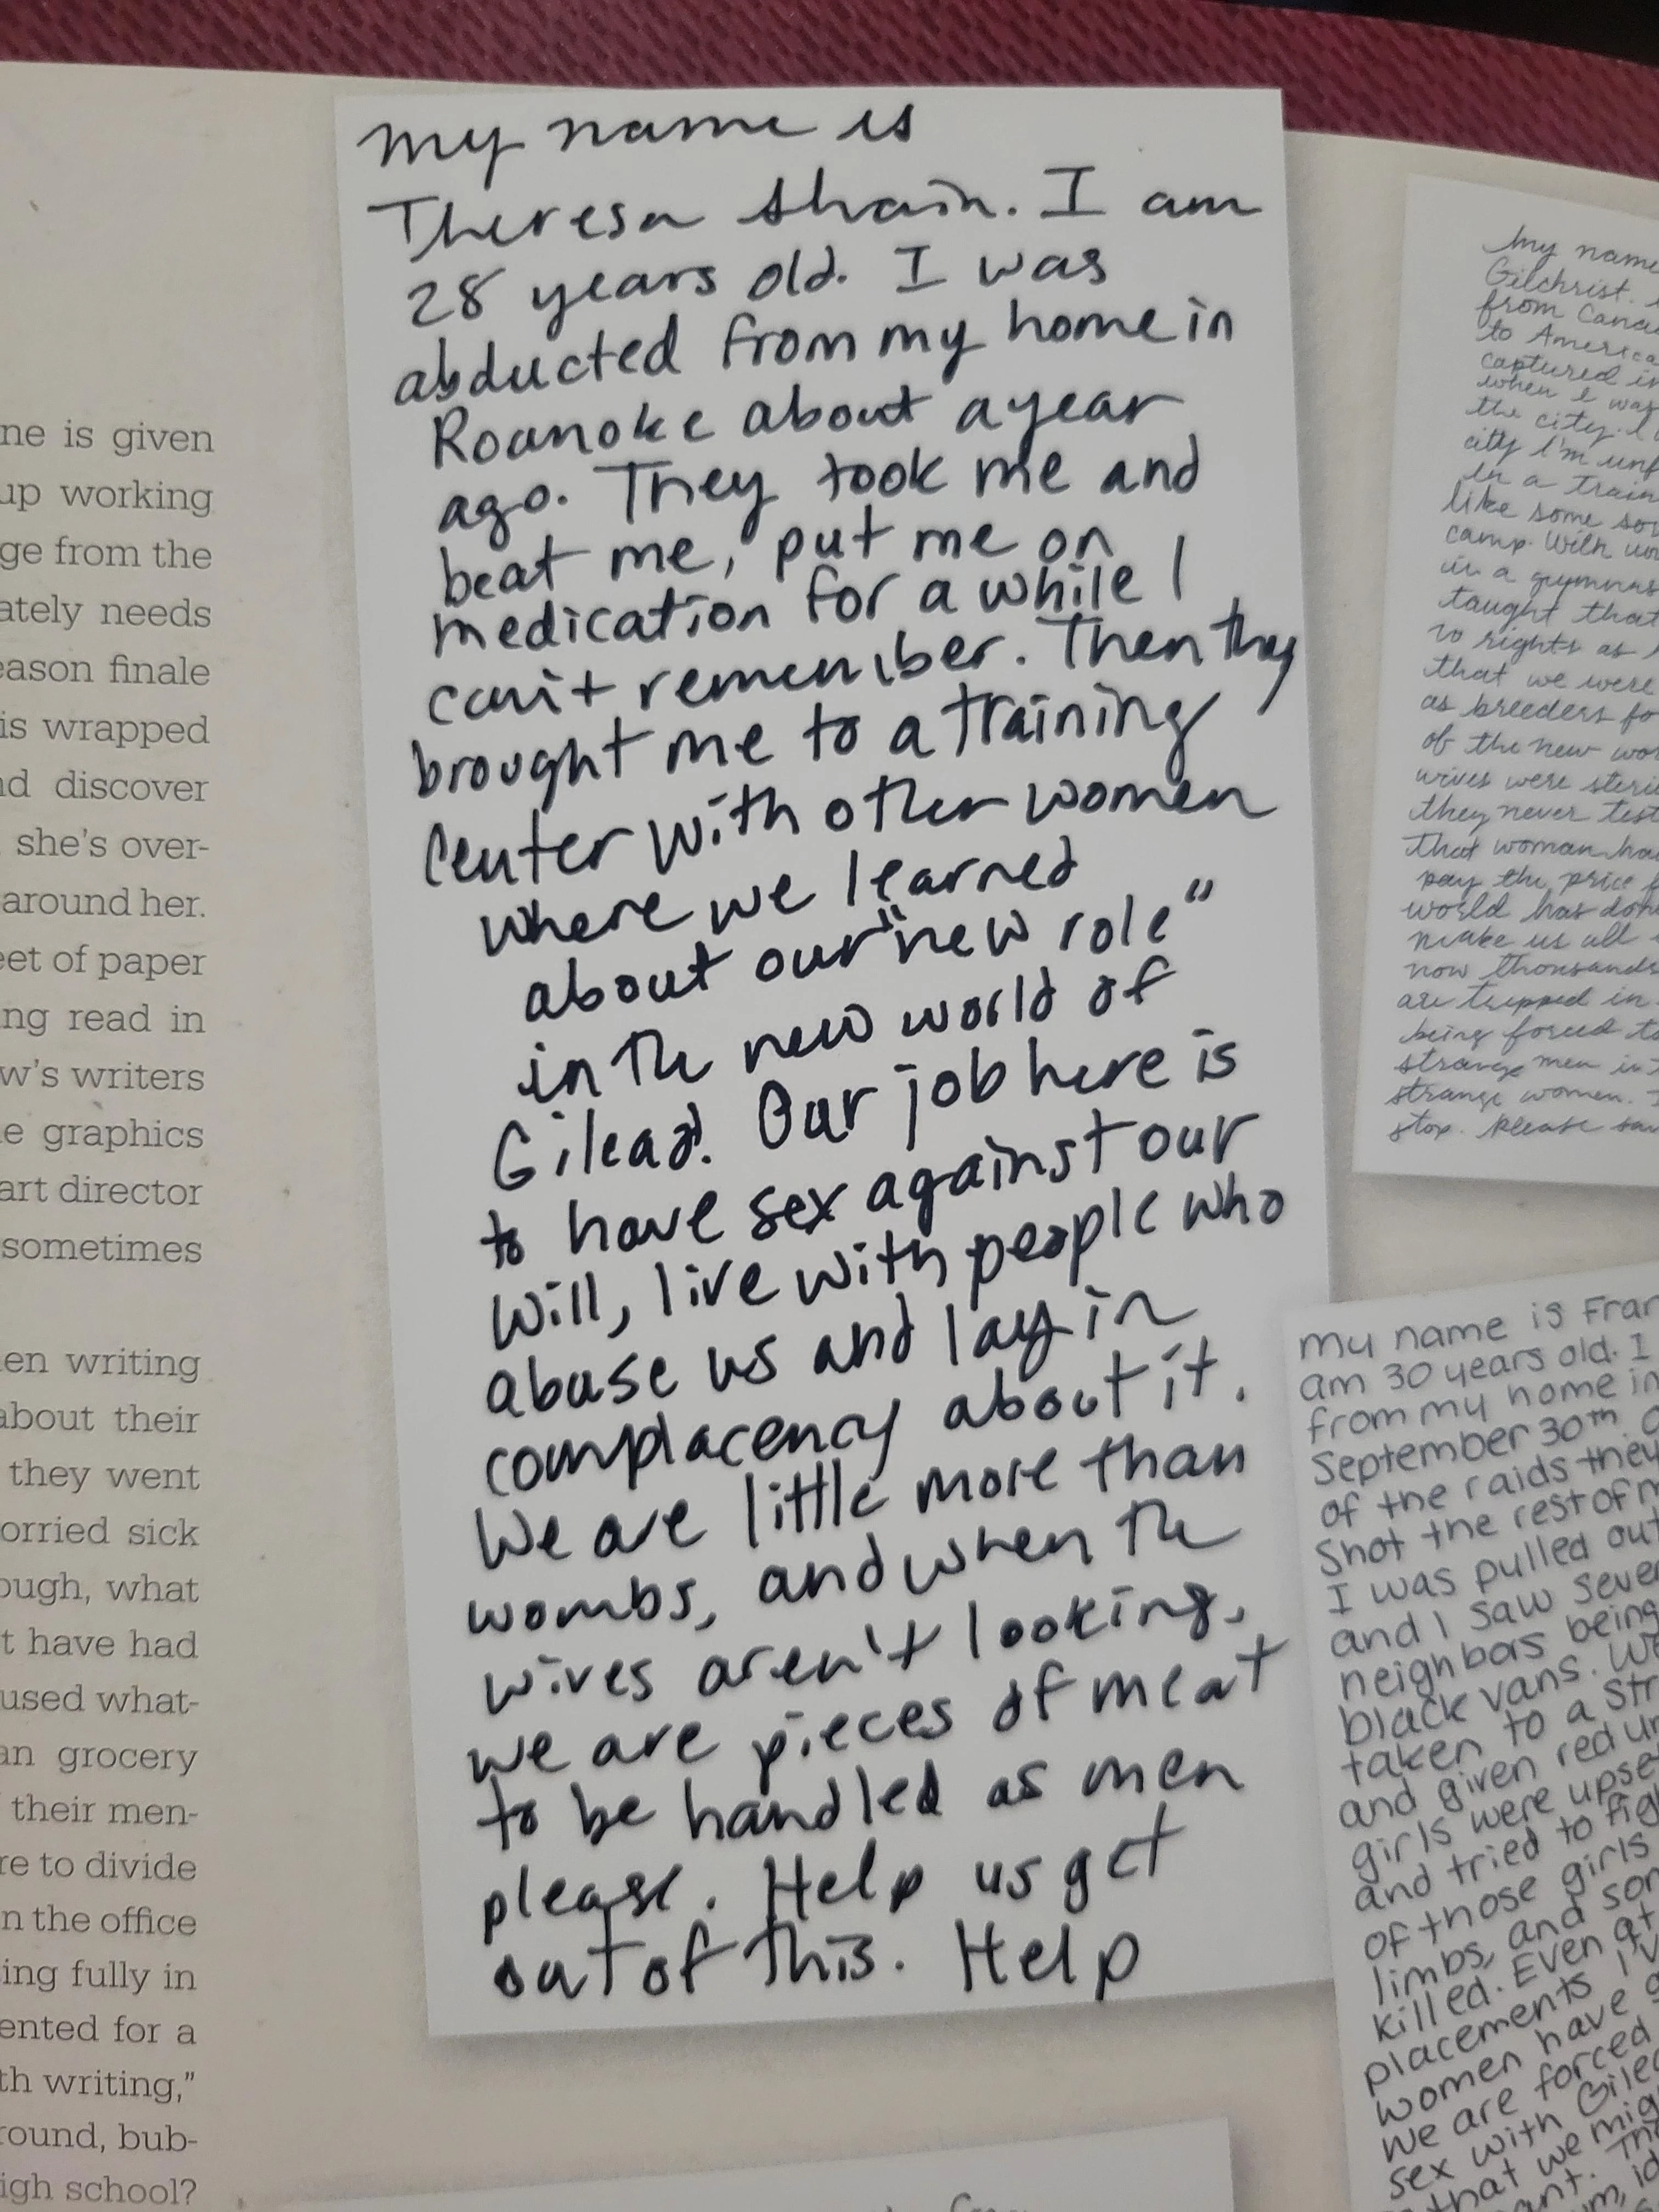 ne is given
up working
ge from the
ately needs
eason finale
is wrapped
nd discover
she's over-
around her.
eet of paper
ng read in
w's writers
e graphics
art director
sometimes
en writing
about their
they went
orried sick
ough, what
t have had
used what-
an grocery
their men-
re to divide
n the office
ing fully in
ented for a
th writing,"
round, bub-
igh school?
my name is
Theresa Shain. I am
28 years old. I was
abducted from my home in
Roanoke about a year
ago. They took me and
beat me, put me on
medication for a while I
can't remember. Then they
brought me to a training
center with other women
where we learned
about our "new role"
in the new world of
Gilead. Our job here is
to have sex against our
will, live with people who
abuse us and lay in
complacency about it.
We are little more than
wombs, and when the
wives aren't looking,
we are pieces of meat
to be handled as men
please. Help us get
out of this. Help
my name
Gilchrist.
from Cana
to America
captured in
when I was
the city. I
city I'm unf
in a train
like some so
camp. With wo
in a gymnas
taught that
no rights as
that we were
as breeders fo
of the new wor
wives were steri
they never test
that woman ha
pay the price f
world has done
make us all
now thousands
are trapped in
being forced to
strange men in
strange women. I
stop. Please sav
my name is Fran
am 30 years old. I
from my home in
September 30th.
of the raids they
shot the rest of m
I was pulled out
and I saw sever
neighbors being
black vans. We
taken to a str
and given red un
girls were upse
and tried to fig
of those girls
limbs, and som
killed. Even at
placements I'v
women have g
we are forced
sex with Gilea
that we mig